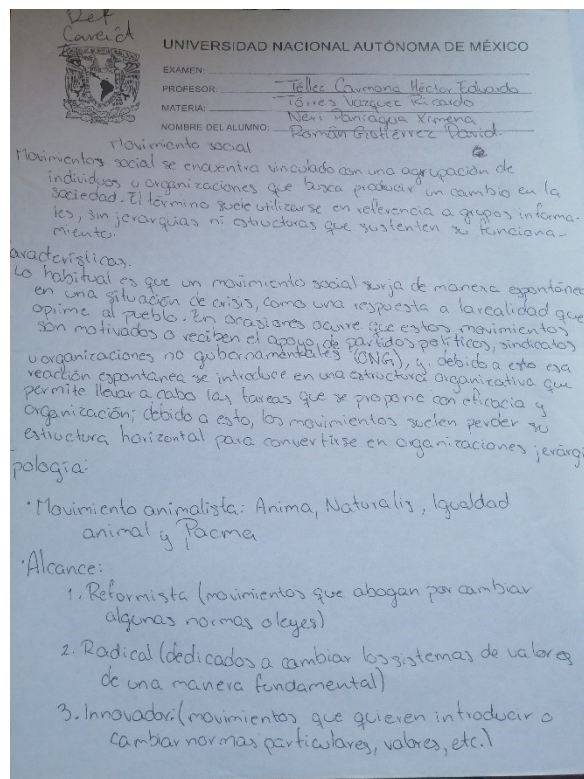 Def
Caract
UNIVERSIDAD NACIONAL AUTÓNOMA DE MÉXICO
EXAMEN:
PROFESOR: Téllez Carmona Héctor Eduardo
MATERIA: Torres Vazquez Ricardo
Neri Paniagua Ximena
NOMBRE DEL ALUMNO: Román Gutiérrez David.
Movimiento social
Movimientos social se encuentra vinculado con una agrupación de
individuos u organizaciones que busca producir un cambio en la
sociedad. El término suele utilizarse en referencia a grupos informa-
les, sin jerarquias ni estructuras que sustenten su funciona-
miento.
aracterísticas.
Lo habitual es que un movimiento social surja de manera espontánea
en una situación de crisis, como una respuesta a la realidad que
oprime al pueblo. En ocasiones ocurre que estos movimientos
son motivados o reciben el apoyo de partidos políticos, sindicatos
u organizaciones no gubernamentales (ONG), y debido a esto esa
reacción espontánea se introduce en una estructura organizativa que
permite llevar a cabo las tareas que se propone con eficacia y
organización; debido a esto, los movimientos suelen perder su
estructura horizontal para convertirse en organizaciones jerárgi
pología:
· Movimiento animalista: Anima, Naturalis, Igualdad
animal y Pacma
· Alcance:
1. Reformista (movimientos que abogan por cambiar
algunas normas o leyes)
2. Radical (dedicados a cambiar los sistemas de valores
de una manera fundamental)
3. Innovador: (movimientos que quieren introducir o
cambiar normas particulares, valores, etc.)